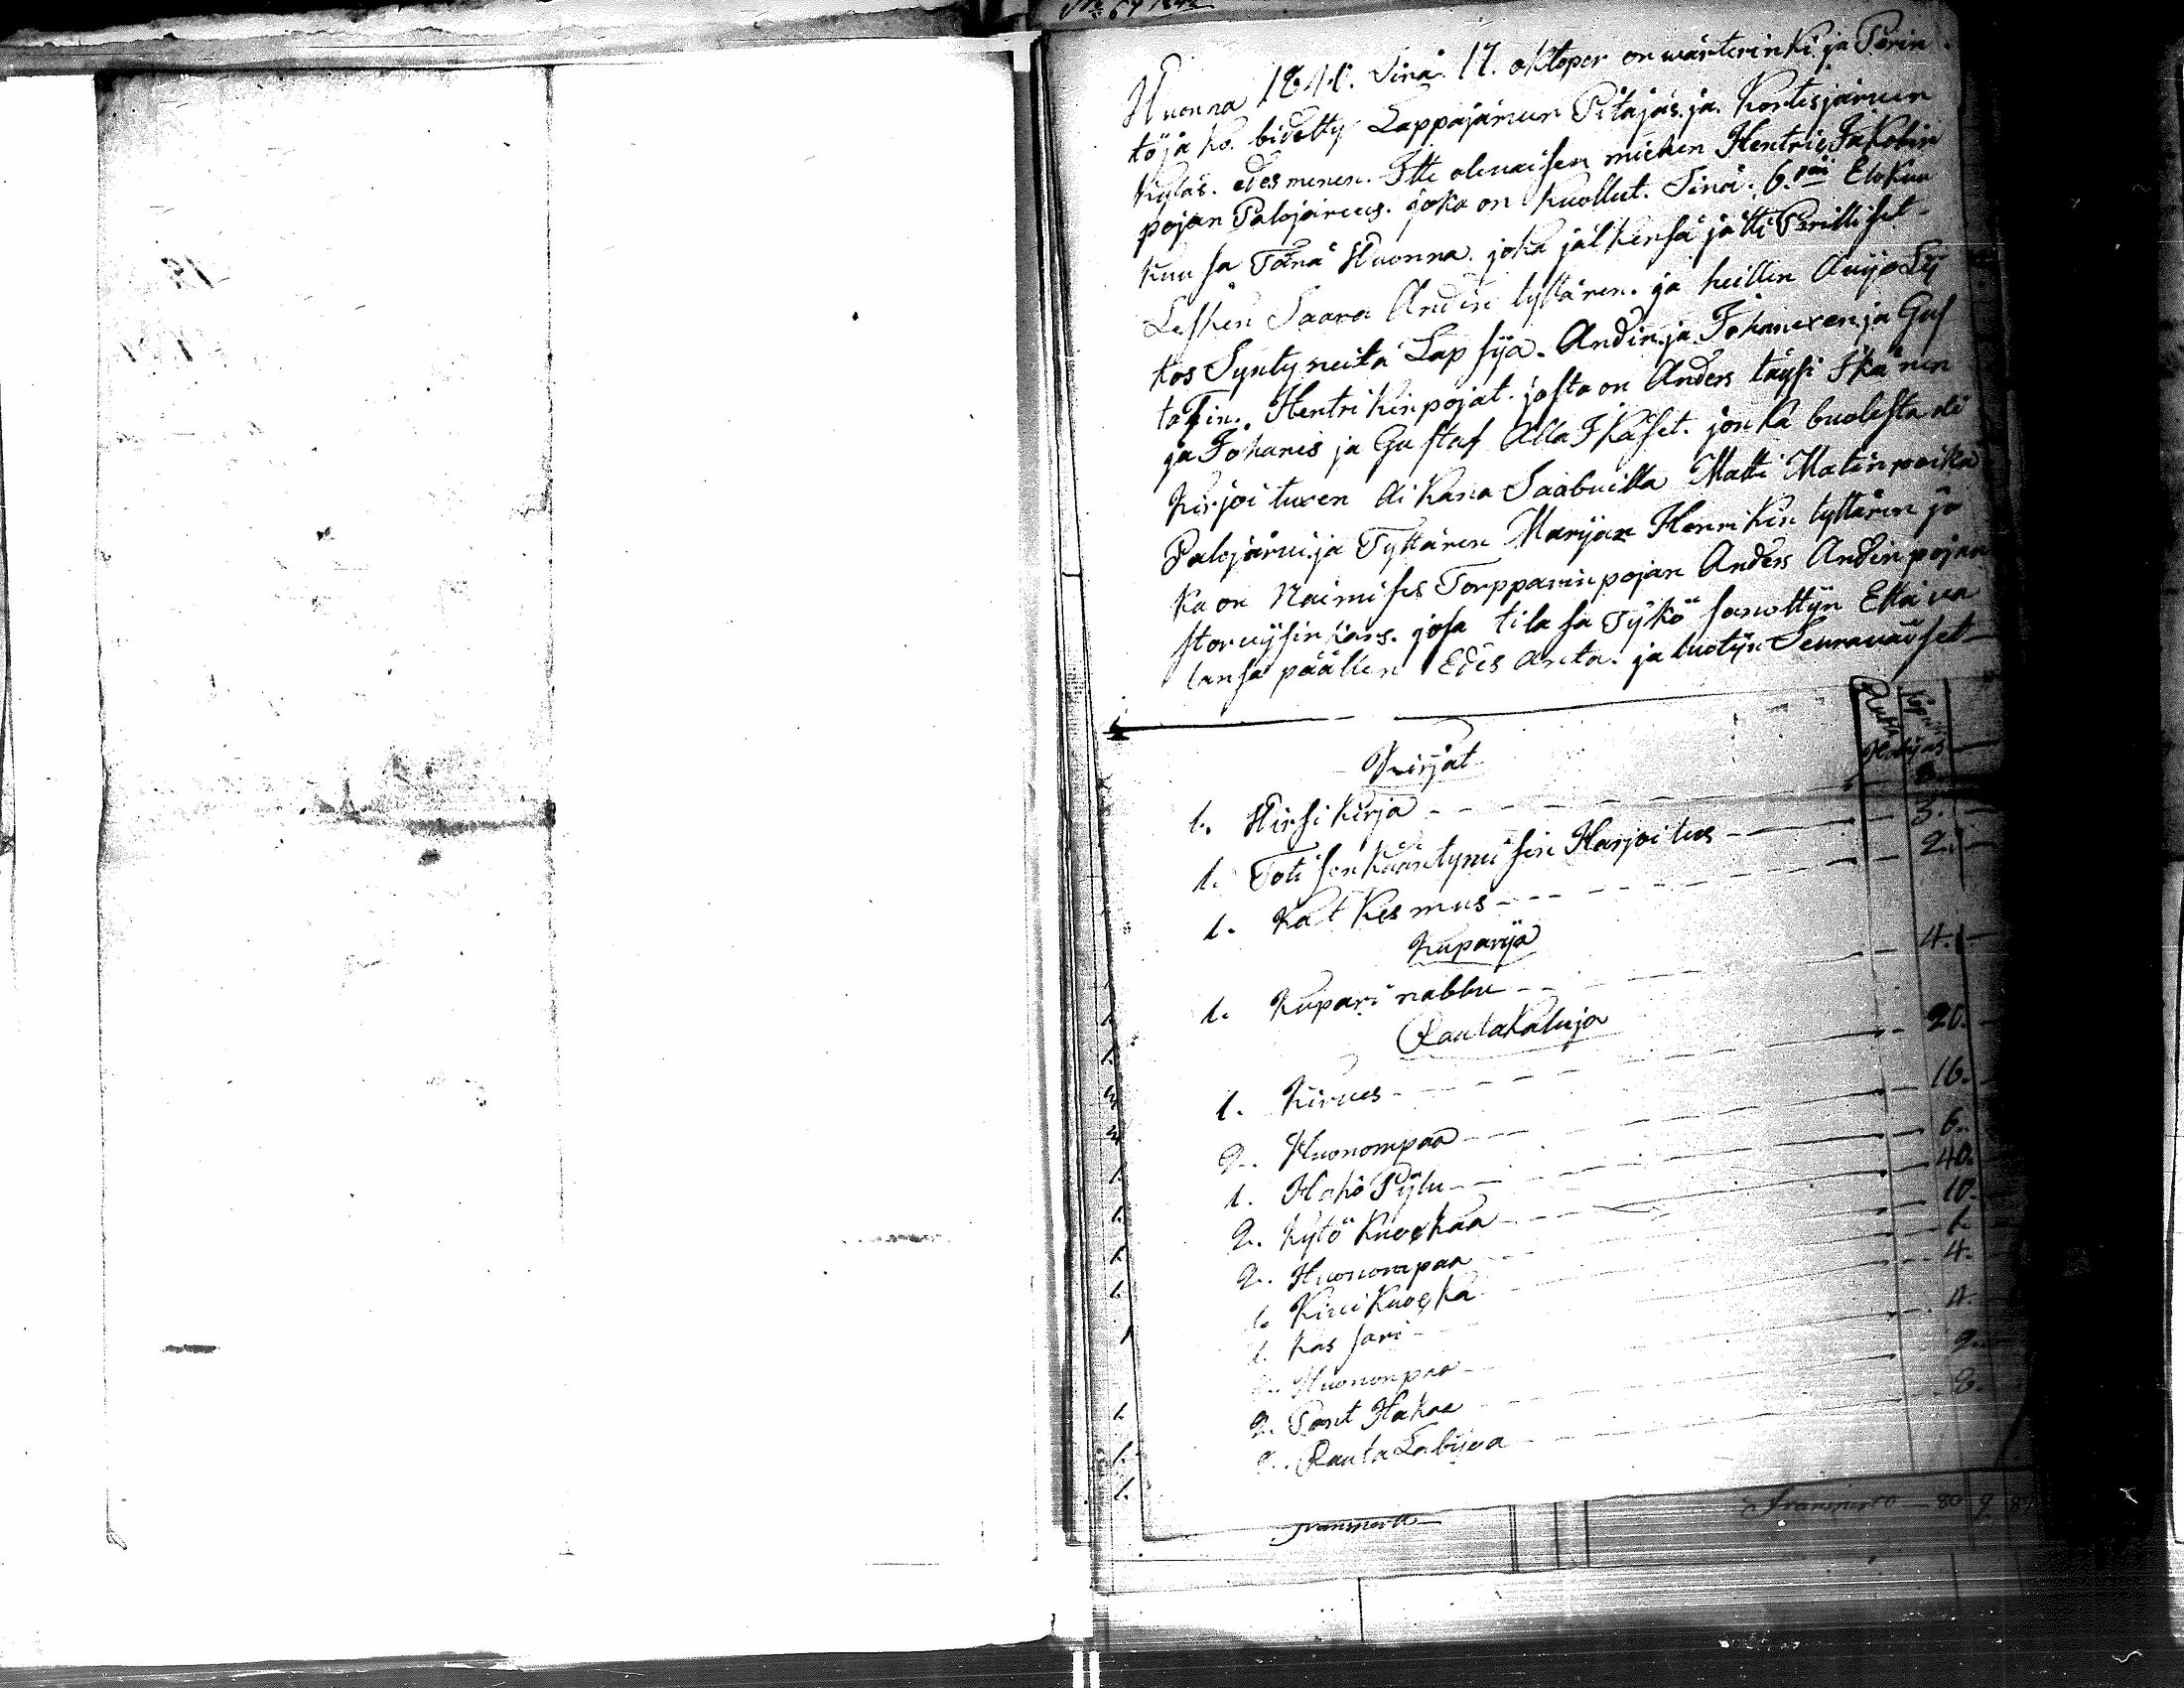 Wuonna 1841. Sinä 17. oktoper on wärterinki ja Perin
töjako. bidetty Lappajärwen Pitäjäs. ja. Kortesjärwen
Kyläs. edesmenen. Itte olewaisen miehen Hentric Jakobin
pojan Palojärwes. joka on kuollut. Sinä. 6. päi Elokuu
kuusa Tänä Wuonna. joka jälkensä jätti Perilliset
Lesken Saara Andin tyttären. ja heillen Awijo Sy
kos Syntyneitä Lapsija. Andin ja Johanexen ja Gus
tafin. Hentrikin pojat. josta on Anders täysi Ikänen
ja Johanis ja Gustaf Alla Ikäset. jonka buolesta oli
Kirjoituxen Aikana Saabuilla Matti Matin poika
Palojärwi ja Tyttären Marijan Henrikin tyttären jo
ka on Naimises Torpparin pojan Anders Andin pojan
storwijsin kans. josa tilasa Työkö sanottijn Ettei wa
lansa päällen Edes Anta. ja tuotijn Seurawaiset
Kirjat
1. Wirsi Kirja
1. Toti sen käändymisen Harjoitus 3.
1. Katkesmus 2.
Kuparija
1. Kupari nabbu 4.
Rautakaluja
1. Kirwes 20.
2. Wuonompaa 16.
1. Hako Pijlu 6.
2. Kytö Kuockaa 40.
2. Wuonompaa 10.
1. Kiwi Kuocka 1.
1. Kassari 4.
Wuonompaa 4.
2. Pant Hakaa 2.
Rauta Labijoa 8.
Transportt
Transportt 80